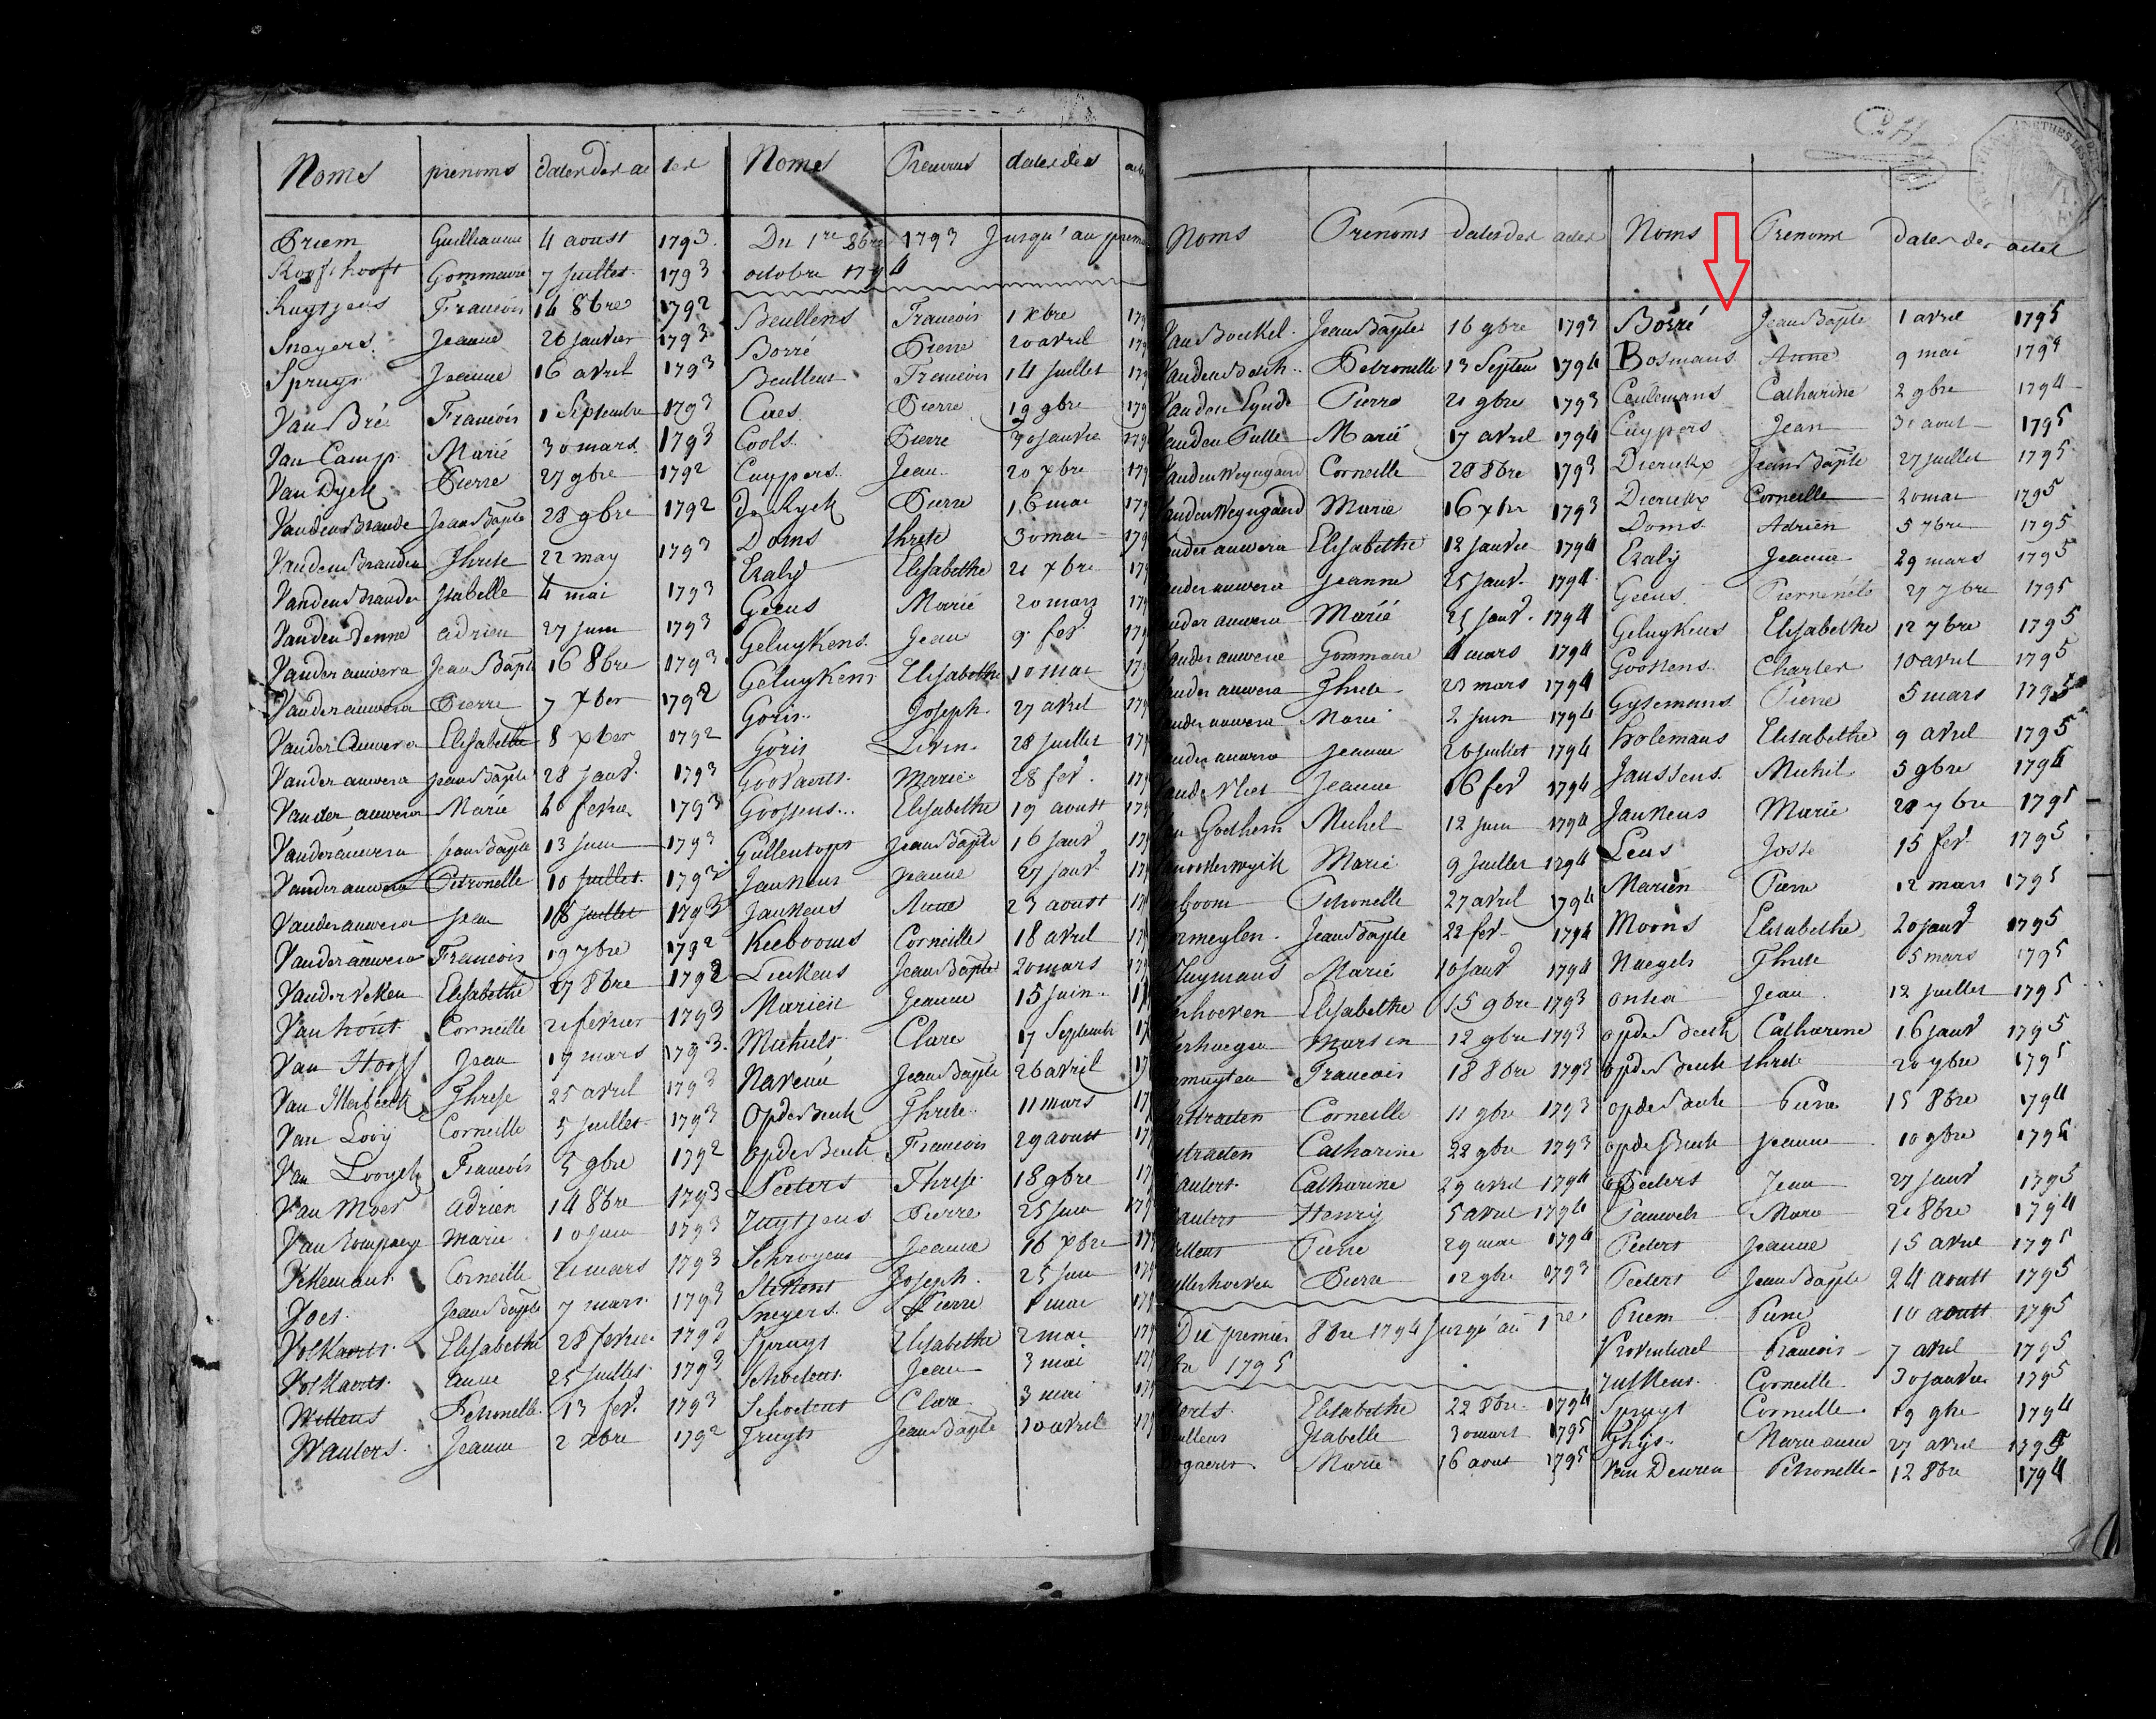 Noms prenoms dates des ac tes
Priem Guilliaume 4 aoust 1793
Roofthooft Gommaire 7 juillet 1793
Ruytjens Francois 14 8bre 1792
Sneyers Jeanne 26 janvier 1793
Spruyt Jeanne 16 avril 1793
Van Bré Francois 1 Septembre 1793
Van Camp Marié 30 mars 1793
Van Dyck Pierre 27 gbre 1792
Vanden Brande Jean Bapte 28 gbre 1792
Vanden Branden Threse 22 may 1793
Vanden Brander Isabelle 4 mai 1793
Vanden Denne adrien 27 juin 1793
Vander auwera Jean Bapte 16 8bre 1793
Vander auwera Pierre 7 xber 1792
Vander Auwera Elisabethe 8 xber 1792
Vander auwera Jean Bapte 28 janv. 1793
Vander auwera Marie fevrier 1793
Vander auwera Jean Bapte 13 juin 1793
Vander auwera Petronelle 10 juillet 1793
Vander auwera Jean 18 juillet 1793
Vander auwera Francois 19 7bre 1792
Vander Veken Elisabethe 27 8bre 1792
Van hout Corneille 21 fevrier 1793
Van Hooff Jean 19 mars 1793
Van Threse 25 avril 1793
Van Looÿ Corneille 5 juillet 1793
Van Francois 5 gbre 1792
Van Moer adrien 14 8bre 1793
Van Rompaey marie 10 juin 1793
Corneille mars 1793
Voes Jean Bapte 7 mars 1793
Volkaerts Elisabethe 28 fevrier 1793
Volkaerts anne 25 juillet 1793
Willens Petronelle 13 fev. 1793
Wauters Jeanne 2 xbre 1792
Noms Prenoms dates des actes
Du 1re 8bre 1793 Jusqu'au premier
octobre 1794
Beullens Francois 1 xbre 179
Borré Pierre 20 avril 179
Beullens Francois 14 juillet 179
Caes Pierre 19 gbre 179
Cools Pierre 30 janvier 179
Cuypers Jean 20 xbre 179
de Ryck Pierre 16 mai 179
Doms threse 30 mai 179
Eraly Elisabethe 21 xbre 179
Geens Marié 20 mars 179
Geluykens Jean 9 fev 179
Geluykens Elisabethe 10 mai 179
Goris Joseph 27 avril 179
Goris Livin 28 juillet 179
Goovaerts Marie 28 fev. 179
Goossens Elisabethe 19 aoust 179
Gullentops Jean Bapte 16 janv 179
Jankens Jeanne 27 janv 179
Jankens Anne 23 aoust 179
Keebooms Corneille 18 avril 179
Luckens Jean Bapte 20 mars 179
Marien Jeanne 15 juin 17
Michiels Clare 17 Septemb 17
Naveau Jean Bapte 26 avril 17
Op de Beeck Threse 11 mars 17
Op de Beeck Francois 29 aoust 17
Peeters Threse 18 gbre 17
Ruytjens Pierre 25 juin 179
Schroyens Jeanne 16 xbre 179
Stekens Joseph 25 juin 179
Sneyers Pierre 1 mai 179
Spruyt Elisabethe 2 mai 179
Schoetens Jean 3 mai 179
Schoetens Clare 3 mai 179
Truyts Jean Bapte 10 avril 179
Noms Prenoms dates des actes
Van Bouckel Jean Bapte 16 gbre 1793
Vanden Bosch Petronelle 13 Septem 1794
Vanden Eynde Pierre 21 gbre 1793
Vanden Putte Marié 17 avril 1794
Vanden Weyngaerd Corneille 28 8bre 1793
Vanden Weyngaerd Marie 16 xbre 1793
Vander auwera Elisabethe 12 janvier 1794
Vander auwera Jeanne 25 janv. 1794
Vander auwera Marié 25 janv. 1794
Vander auwera Gommaire 4 mars 1794
Vander auwera Threse 23 mars 1794
Vander auwera Marie 2 juin 1794
Vander auwera Jeanne 26 juillet 1794
Vande Vliet Jeanne 16 fev 1794
Van Goethem Michel 12 juin 1794
Marie 9 juillet 1794
Petronelle 27 avril 1794
Jean Bapte 22 fev 1794
Marié 10 janv 1794
Verhoeven Elisabethe 15 gbre 1793
Verhaegen Martin 12 gbre 1793
Francois 18 8bre 1793
Verstraeten Corneille 11 gbre 1793
Verstraeten Catharine 22 gbre 1793
Wauters Catharine 29 avril 1794
Wauters Henry 5 avril 1794
Willens Pierre 29 mai 1794
Pierre 12 gbre 1793
Du premier 8bre 1794 jusqu'au 1re
8bre 1795
Elisabethe 22 8bre 1794
Beullens Isabelle 30 mars 1795
Bogaerts Marie 16 aout 1795
Noms Prenoms dates des actes
Borré Jean Bapte 1 avril 1795
Bosmans Anne 9 mai 1795
Ceulemans Catharine 2 gbre 1794
Cuypers Jean 31 aout 1795
Dierickx Jean Bapte 27 juillet 1795
Dierickx Corneille 20 mai 1795
Doms Adrien 5 7bre 1795
Eraly Jeanne 29 mars 1795
Geens 27 7bre 1795
Geluykens Elisabethe 12 7bre 1795
Goossens Charles 10 avril 1795
Gysemans Pierre 5 mars 1795
holemans Elisabethe 9 avril 1795
Janssens Michel 5 gbre 1794
Jankens Marie 20 7bre 1795
Lens Josse 15 fev. 1795
Marien Pierre 12 mars 1795
Moons Elisabethe 20 janv 1795
Naegels Threse 05 mars 1795
Jean 12 juillet 1795
op de Beeck Catharine 16 janv 1795
op de Beeck threse 20 7bre 1795
op de Beeck Pierre 15 8bre 1794
op de Beeck Jeanne 10 gbre 1794
Peeters Jean 27 janv 1795
Pauwels Marie 21 8bre 1794
Peeters Jeanne 15 avril 1795
Peeters Jean Bapte 24 aoust 1795
Priem Pierre 10 aoust 1795
Francois 7 avril 1795
Corneille 30 janvier 1795
Spruyt Corneille 19 gbre 1794
Thijs Marie anne 27 avril 1795
Van Deuren Petronelle 12 8bre 1794